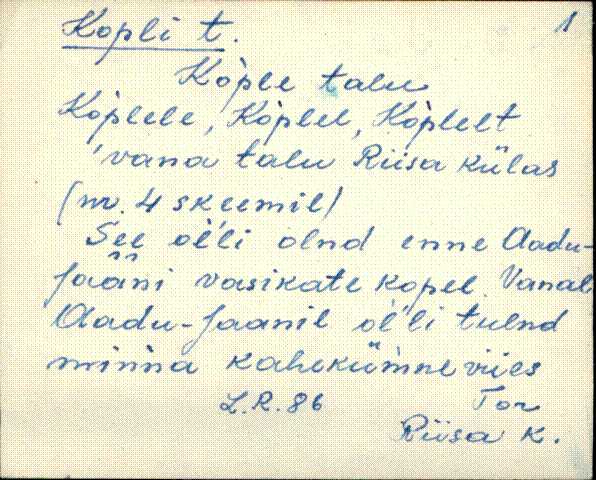 Kopli t. 1
Kòple talu
Kòplele, Kòplel, Kòplelt
'vana talu Riisa külas
(nr. 4 skeemil)
See òĺli olnd enne Aadu-
Jaani vasikate kopel. Vanal
Aadu-Jaanil òĺli tulnd
minna kahekümneviies
L.R. 86 Tor
Riisa k.